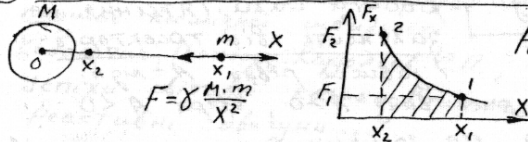 M
0 x₂ m x₁ X
F = γ M·m / X²
Fₓ
F₂ 2
F₁ 1
x₂ x₁ X